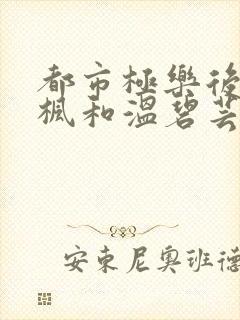 都市極樂後
楓和溫碧芸
安東尼奧班德